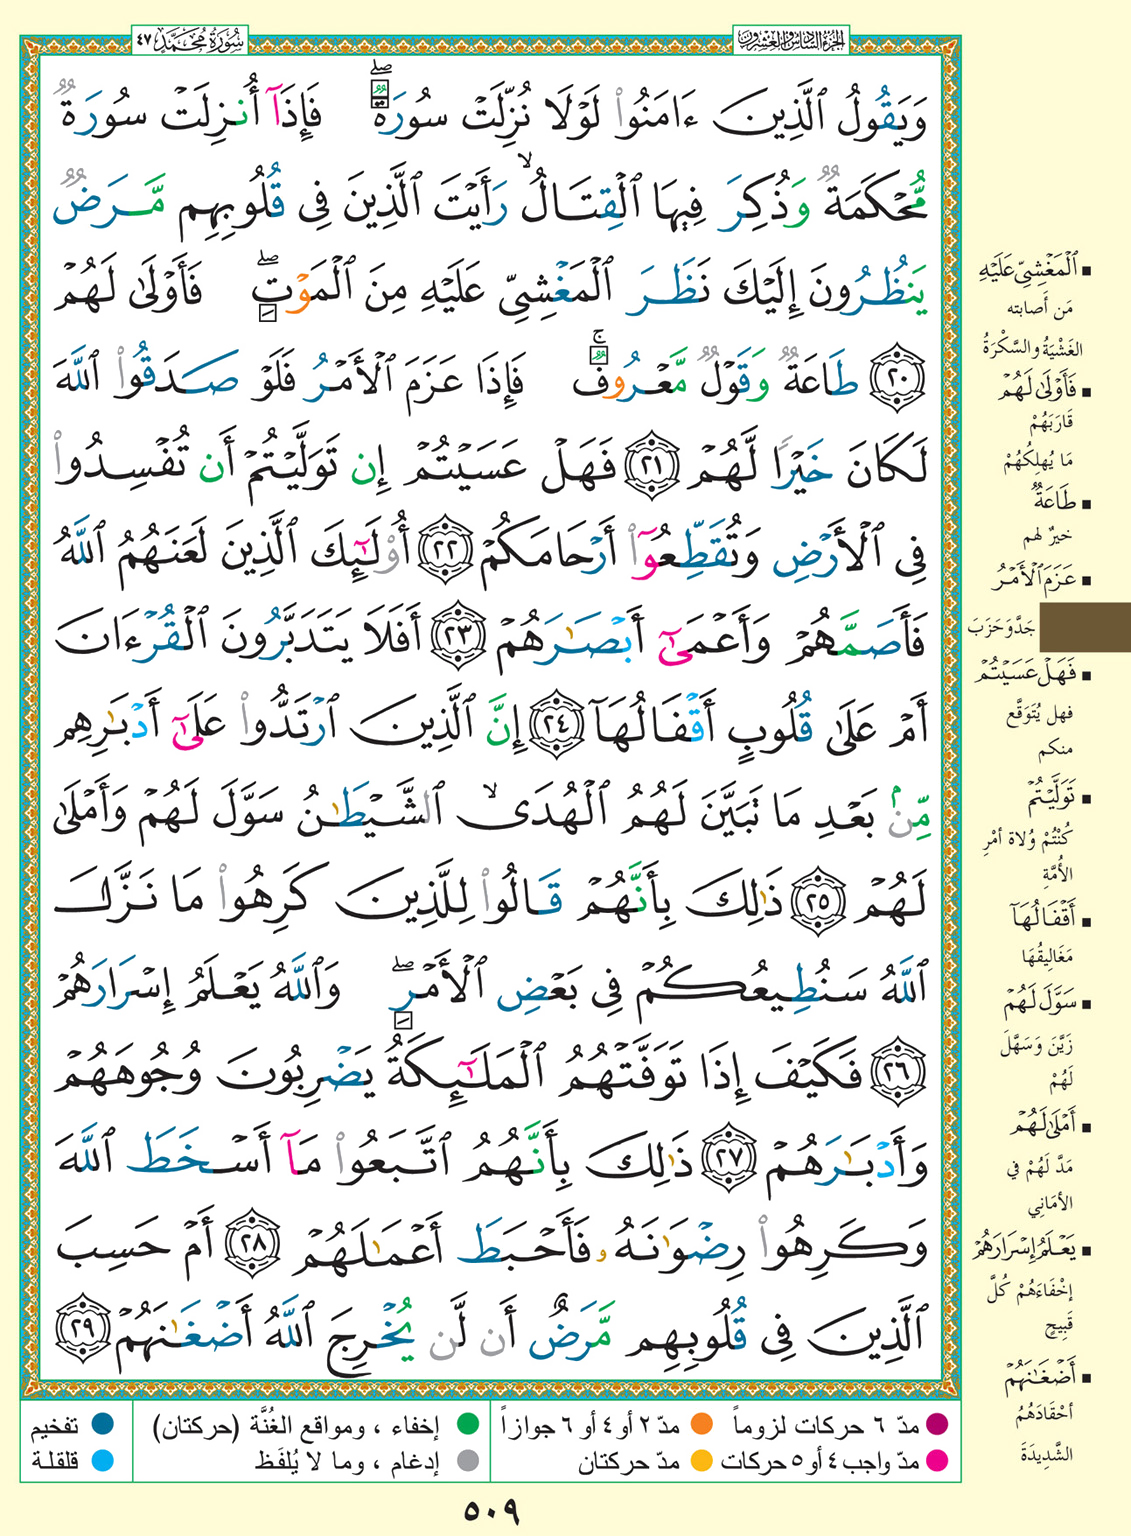 الجزء السادس والعشرون
سُورَةُ مُحَمَّدٍ ٤٧
وَيَقُولُ ٱلَّذِينَ ءَامَنُوا۟ لَوْلَا نُزِّلَتْ سُورَةٌ ۖ فَإِذَآ أُنزِلَتْ سُورَةٌ
مُّحْكَمَةٌ وَذُكِرَ فِيهَا ٱلْقِتَالُ ۙ رَأَيْتَ ٱلَّذِينَ فِى قُلُوبِهِم مَّرَضٌ
يَنظُرُونَ إِلَيْكَ نَظَرَ ٱلْمَغْشِىِّ عَلَيْهِ مِنَ ٱلْمَوْتِ ۖ فَأَوْلَىٰ لَهُمْ
٢٠ طَاعَةٌ وَقَوْلٌ مَّعْرُوفٌ ۚ فَإِذَا عَزَمَ ٱلْأَمْرُ فَلَوْ صَدَقُوا۟ ٱللَّهَ
لَكَانَ خَيْرًا لَّهُمْ ٢١ فَهَلْ عَسَيْتُمْ إِن تَوَلَّيْتُمْ أَن تُفْسِدُوا۟
فِى ٱلْأَرْضِ وَتُقَطِّعُوٓا۟ أَرْحَامَكُمْ ٢٢ أُو۟لَـٰٓئِكَ ٱلَّذِينَ لَعَنَهُمُ ٱللَّهُ
فَأَصَمَّهُمْ وَأَعْمَىٰٓ أَبْصَـٰرَهُمْ ٢٣ أَفَلَا يَتَدَبَّرُونَ ٱلْقُرْءَانَ
أَمْ عَلَىٰ قُلُوبٍ أَقْفَالُهَآ ٢٤ إِنَّ ٱلَّذِينَ ٱرْتَدُّوا۟ عَلَىٰٓ أَدْبَـٰرِهِم
مِّنۢ بَعْدِ مَا تَبَيَّنَ لَهُمُ ٱلْهُدَى ۙ ٱلشَّيْطَـٰنُ سَوَّلَ لَهُمْ وَأَمْلَىٰ
لَهُمْ ٢٥ ذَٰلِكَ بِأَنَّهُمْ قَالُوا۟ لِلَّذِينَ كَرِهُوا۟ مَا نَزَّلَ
ٱللَّهُ سَنُطِيعُكُمْ فِى بَعْضِ ٱلْأَمْرِ ۖ وَٱللَّهُ يَعْلَمُ إِسْرَارَهُمْ
٢٦ فَكَيْفَ إِذَا تَوَفَّتْهُمُ ٱلْمَلَـٰٓئِكَةُ يَضْرِبُونَ وُجُوهَهُمْ
وَأَدْبَـٰرَهُمْ ٢٧ ذَٰلِكَ بِأَنَّهُمُ ٱتَّبَعُوا۟ مَآ أَسْخَطَ ٱللَّهَ
وَكَرِهُوا۟ رِضْوَٰنَهُۥ فَأَحْبَطَ أَعْمَـٰلَهُمْ ٢٨ أَمْ حَسِبَ
ٱلَّذِينَ فِى قُلُوبِهِم مَّرَضٌ أَن لَّن يُخْرِجَ ٱللَّهُ أَضْغَـٰنَهُمْ ٢٩
■ ٱلْمَغْشِىِّ عَلَيْهِ
مَن أَصابته
الغَشْيَةُ والسَّكْرَةُ
■ فَأَوْلَىٰ لَهُمْ
قَارَبَهُمْ
مَا يُهلِكُهُمْ
■ طَاعَةٌ
خيرٌ لهم
■ عَزَمَ ٱلْأَمْرُ
جَدَّ وَحَزَبَ
■ فَهَلْ عَسَيْتُمْ
فهل يُتَوَقَّع
منكم
■ تَوَلَّيْتُمْ
كُنْتُمْ وُلاة أمْرِ
الأُمَّةِ
■ أَقْفَالُهَآ
مَغَالِيقُهَا
■ سَوَّلَ لَهُمْ
زَيَّنَ وَسَهَّلَ
لَهُمْ
■ أَمْلَىٰ لَهُمْ
مَدَّ لَهُمْ في
الأمَانِي
■ يَعْلَمُ إِسْرَارَهُمْ
إخْفَاءَهُمْ كُلَّ
قَبِيحٍ
■ أَضْغَـٰنَهُمْ
أحْقَادَهُمُ
الشَّدِيدَةَ
مدّ ٦ حركات لزوماً
مدّ ٢ أو ٤ أو ٦ جوازاً
إخفاء ، ومواقع الغُنَّة (حركتان)
تفخيم
مدّ واجب ٤ أو ٥ حركات
مدّ حركتان
إدغام ، وما لا يُلفَظ
قلقلة
٥٠٩